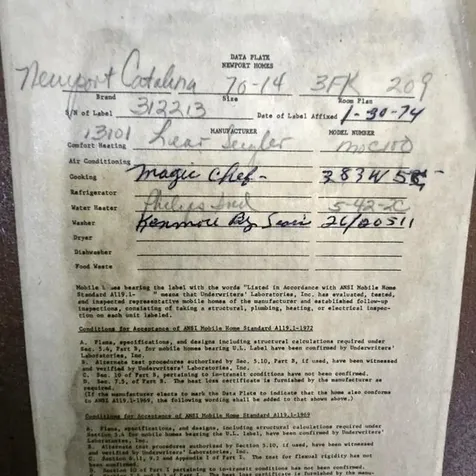 DATA PLATE
NEWPORT HOMES
Newport Catalina 70-14 3FK 209
Brand Size Room Plan
S/N of Label 312213 Date of Label Affixed 1-30-74
13101 MANUFACTURER MODEL NUMBER
Comfort Heating Lear Seigler
Air Conditioning
Cooking Magic Chef
Refrigerator
Water Heater 5-42-2C
Washer Kenmore By Sears 26/20511
Dryer
Dishwasher
Food Waste
Mobile homes bearing the label with the words "Listed in Accordance with ANSI Mobile Home
Standard A119.1- " means that Underwriters' Laboratories, Inc. has evaluated, tested,
and inspected representative mobile homes of the manufacturer and established follow-up
inspections, consisting of taking a structural, plumbing, heating, or electrical inspec-
tion on each unit labeled.
Conditions for Acceptance of ANSI Mobile Home Standard A119.1-1972
A. Plans, specifications, and designs including structural calculations required under
Sec. 5.4, Part B, for mobile homes bearing U.L. Label have been confirmed by Underwriters'
Laboratories, Inc.
B. Alternate test procedures authorized by Sec. 5.10, Part B, if used, have been witnessed
and verified by Underwriters' Laboratories, Inc.
C. Sec. 10 of Part B, pertaining to in-transit conditions have not been confirmed.
D. Sec. 7.5, of Part B. The heat loss certificate is furnished by the manufacturer as
required.
(If the manufacturer elects to mark the Data Plate to indicate that the home also conforms
to ANSI A119.1-1969, the following wording shall be added to that shown above.)
Conditions for Acceptance of ANSI Mobile Home Standard A119.1-1969
A. Plans, specifications, and designs, including structural calculations required under
Section 5.4 for mobile homes bearing the U.L. label, have been confirmed by Underwriters'
Laboratories, Inc.
B. Alternate test procedures authorized by Section 5.10, if used, have been witnessed
and verified by Underwriters' Laboratories, Inc. The test for flexural rigidity has not
been confirmed.